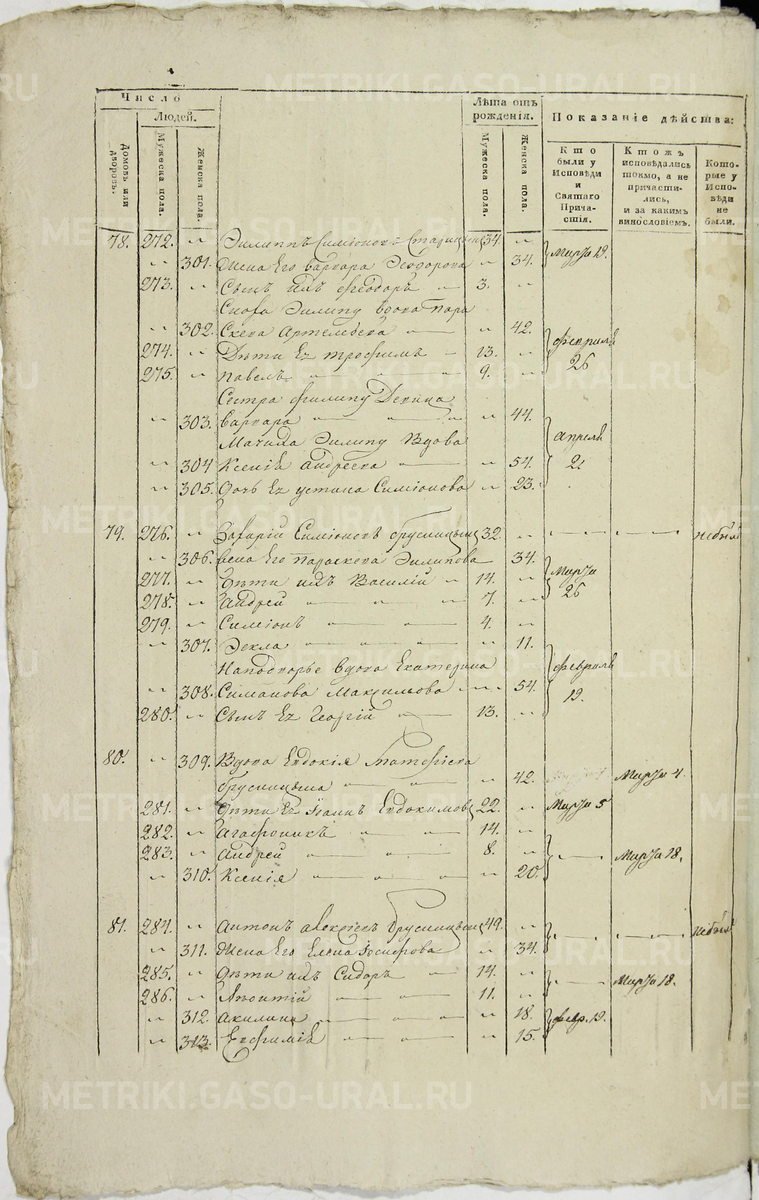 Число
Людей.
Домовъ или дворовъ.
Мужеска пола.
Женска пола.
Лѣта отъ рожденія.
Мужеска пола.
Женска пола.
Показаніе дѣйства:
Кто были у Исповѣди и Святаго Причастія.
Ктожъ исповѣдались токмо, а не причастились, и за какимъ винословіемъ.
Которые у Исповѣди не были.
78. 272. " Филиппъ Симіоновъ 34. " Марта 19.
" 301. Жена Его Варвара Феодорова " 34.
273. " Сынъ ихъ Феодоръ 3. "
Сноха Филипу вдова Пара
" 302. скева Артемьева " 42.
274. " Дѣти Ея Трофимъ 13. " февраля 26
275. " Павелъ 9. "
Сестра Филипу Девица
" 303. Варвара " 44.
Мачиха Филипу Вдова
" 304 Ксенія Андреева " 54. Апреля 2
" 305. Дочь Ея Устина Симіонова " 23.
79. 276. " Захарій Симіоновъ Брусницынъ 32. " небылъ
" 306. Жена Его Параскева Филипова 34.
277. " Дѣти ихъ Василій 14. " Марта 26
278. " Андрей 7. "
279. " Симіонъ 4. "
" 307. Фекла " 11.
Наподворье вдова Екатерина
" 308. Симанова Максимова " 54. февраля 19.
280. " Сынъ Ея Георгій 13. "
80. " 309. Вдова Евдокія Матфіева
Брусницына " 42. Марта 4.
281. " Дѣти Ея Іоаннъ Евдокимовъ 22. " Марта 5
282. " Агафоникъ 14. "
283. " Андрей 8. " Марта 18.
" 310. Ксенія " 20.
81. 284. " Антонъ Алексіевъ Брусницынъ 49. " небылъ
" 311. Жена Его Елена Іосифова " 34.
285. " Дѣти ихъ Сидоръ 14. " Марта 18.
286. " Леонтій 11. "
" 312. Акилина " 18. февр. 19.
" 313. Евфимія " 15.
METRIKI.GASO-URAL.RU